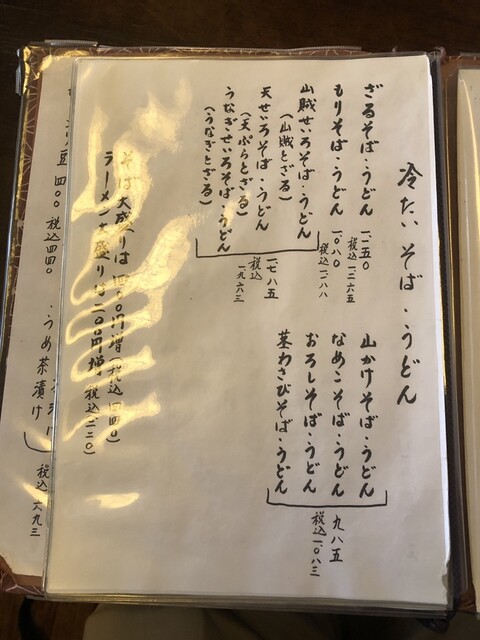 冷たいそば・うどん
ざるそば・うどん 一、一五〇
税込一、二六五
もりそば・うどん 一、〇八〇
税込一、一八八
山賊せいろそば・うどん
(山賊とざる)
天せいろそば・うどん
(天ぷらとざる)
うなぎせいろそば・うどん
(うなぎとざる)
一、七八五
税込
一、九六三
山かけそば・うどん
なめこそば・うどん
おろしそば・うどん
茎わさびそば・うどん
九八五
税込一、〇八三
そば大盛りは四〇〇円増(税込四四〇)
ラーメン大盛りは二〇〇円増(税込二二〇)
うめ茶漬け
税込六九三
四〇〇 税込四四〇